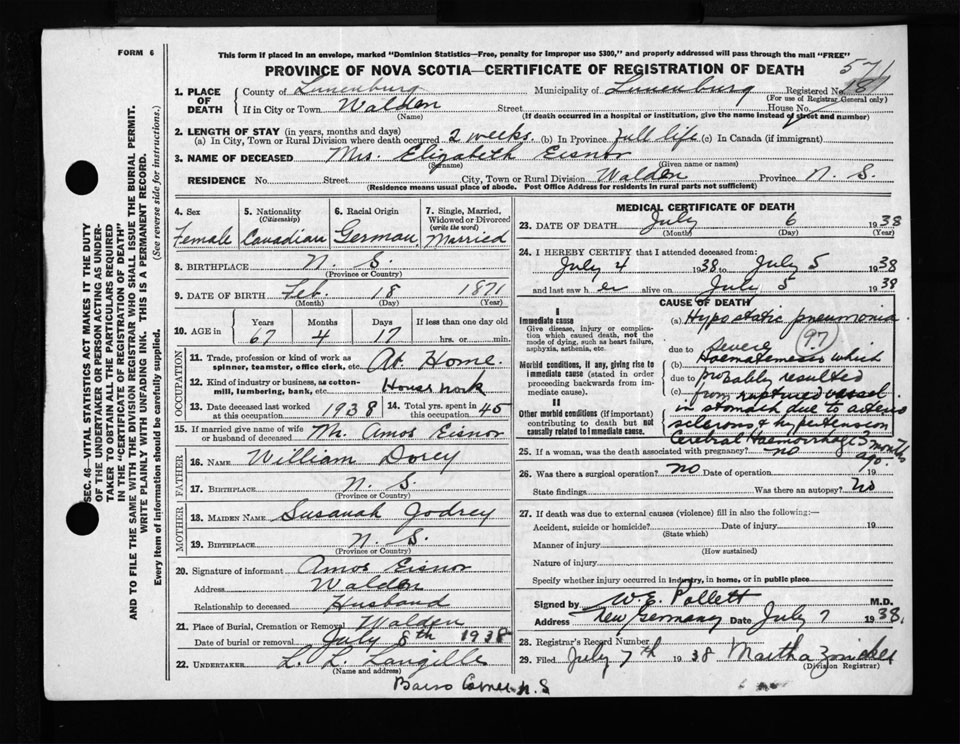 FORM 6
This form if placed in an envelope, marked "Dominion Statistics—Free, penalty for improper use $300," and properly addressed will pass through the mail "FREE"
PROVINCE OF NOVA SCOTIA—CERTIFICATE OF REGISTRATION OF DEATH
1. PLACE OF DEATH County of Lunenburg Municipality of Lunenburg Registered No.
(For use of Registrar General only)
If in City or Town Walden Street House No.
(Name) (If death occurred in a hospital or institution, give the name instead of street and number)
2. LENGTH OF STAY (in years, months and days)
(a) In City, Town or Rural Division where death occurred 2 weeks (b) In Province full life (c) In Canada (if immigrant)
3. NAME OF DECEASED Mrs. Elizabeth Eisnor
(Surname) (Given name or names)
RESIDENCE No. Street City, Town or Rural Division Walden Province N. S.
(Residence means usual place of abode. Post Office Address for residents in rural parts not sufficient)
4. Sex 5. Nationality (Citizenship) 6. Racial Origin 7. Single, Married, Widowed or Divorced (write the word)
Female Canadian German Married
8. BIRTHPLACE N. S.
(Province or Country)
9. DATE OF BIRTH Feb. 18 1871
(Month) (Day) (Year)
10. AGE in Years Months Days If less than one day old
67 4 17 hrs. or min.
OCCUPATION
11. Trade, profession or kind of work as spinner, teamster, office clerk, etc. At Home.
12. Kind of industry or business, as cotton-mill, lumbering, bank, etc. House work
13. Date deceased last worked at this occupation 1938 14. Total yrs. spent in this occupation 45
15. If married give name of wife or husband of deceased Mr. Amos Eisnor
FATHER
16. Name William Dorey
17. Birthplace N. S.
(Province or Country)
MOTHER
18. Maiden Name Susanah Jodrey
19. Birthplace N. S.
(Province or Country)
20. Signature of informant Amos Eisnor
Address Walden
Relationship to deceased Husband
21. Place of Burial, Cremation or Removal Walden
Date of burial or removal July 8th 1938
22. UNDERTAKER L. L. Langille
(Name and address)
Barss Corner N. S
MEDICAL CERTIFICATE OF DEATH
23. DATE OF DEATH July 6 1938
(Month) (Day) (Year)
24. I HEREBY CERTIFY that I attended deceased from:
July 4 1938 to July 5 1938
and last saw her alive on July 5 1938
CAUSE OF DEATH
I
Immediate cause
Give disease, injury or complication which caused death, not the mode of dying, such as heart failure, asphyxia, asthenia, etc.
Morbid conditions, if any, giving rise to immediate cause (stated in order proceeding backwards from immediate cause).
II
Other morbid conditions (if important) contributing to death but not causally related to immediate cause.
(a) Hypostatic pneumonia
97
due to severe
(b) Haematemesis which
due to probably resulted
(c) from ruptured vessel
in stomach due to arterio
sclerosis & hypertension
Cerebral Haemorrhage 3 months ago.
25. If a woman, was the death associated with pregnancy? no
26. Was there a surgical operation? no Date of operation 19
State findings Was there an autopsy? no
27. If death was due to external causes (violence) fill in also the following:—
Accident, suicide or homicide? Date of injury 19
(State which)
Manner of injury
(How sustained)
Nature of injury
Specify whether injury occurred in industry, in home, or in public place
Signed by W. E. Pollett M.D.
Address New Germany Date July 7 1938.
28. Registrar's Record Number
29. Filed July 7th 1938 Martha
(Division Registrar)
SEC. 46—VITAL STATISTICS ACT MAKES IT THE DUTY
OF THE UNDERTAKER OR PERSON ACTING AS UNDER-
TAKER TO OBTAIN ALL THE PARTICULARS REQUIRED
IN THE "CERTIFICATE OF REGISTRATION OF DEATH"
AND TO FILE THE SAME WITH THE DIVISION REGISTRAR WHO SHALL ISSUE THE BURIAL PERMIT.
WRITE PLAINLY WITH UNFADING INK. THIS IS A PERMANENT RECORD.
Every item of information should be carefully supplied. (See reverse side for instructions.)